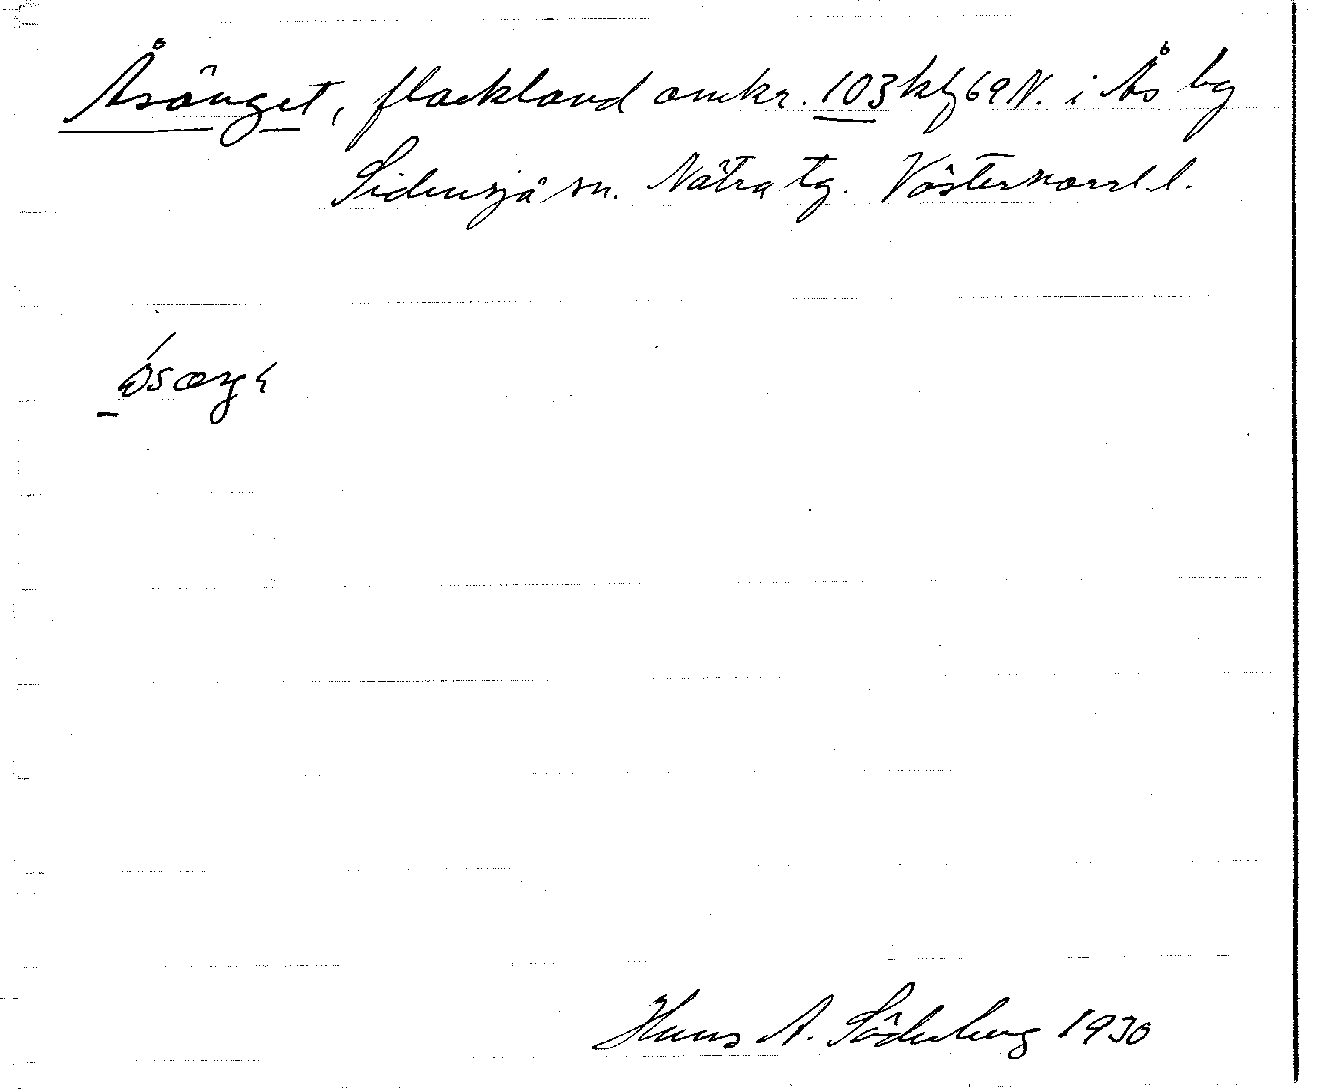 Åsänget, flackland omkr. 103 kf 69 N. i Ås by
Sidensjö sn. Nätra tg. Västernorrl l.
Hans A. Söderberg 1930